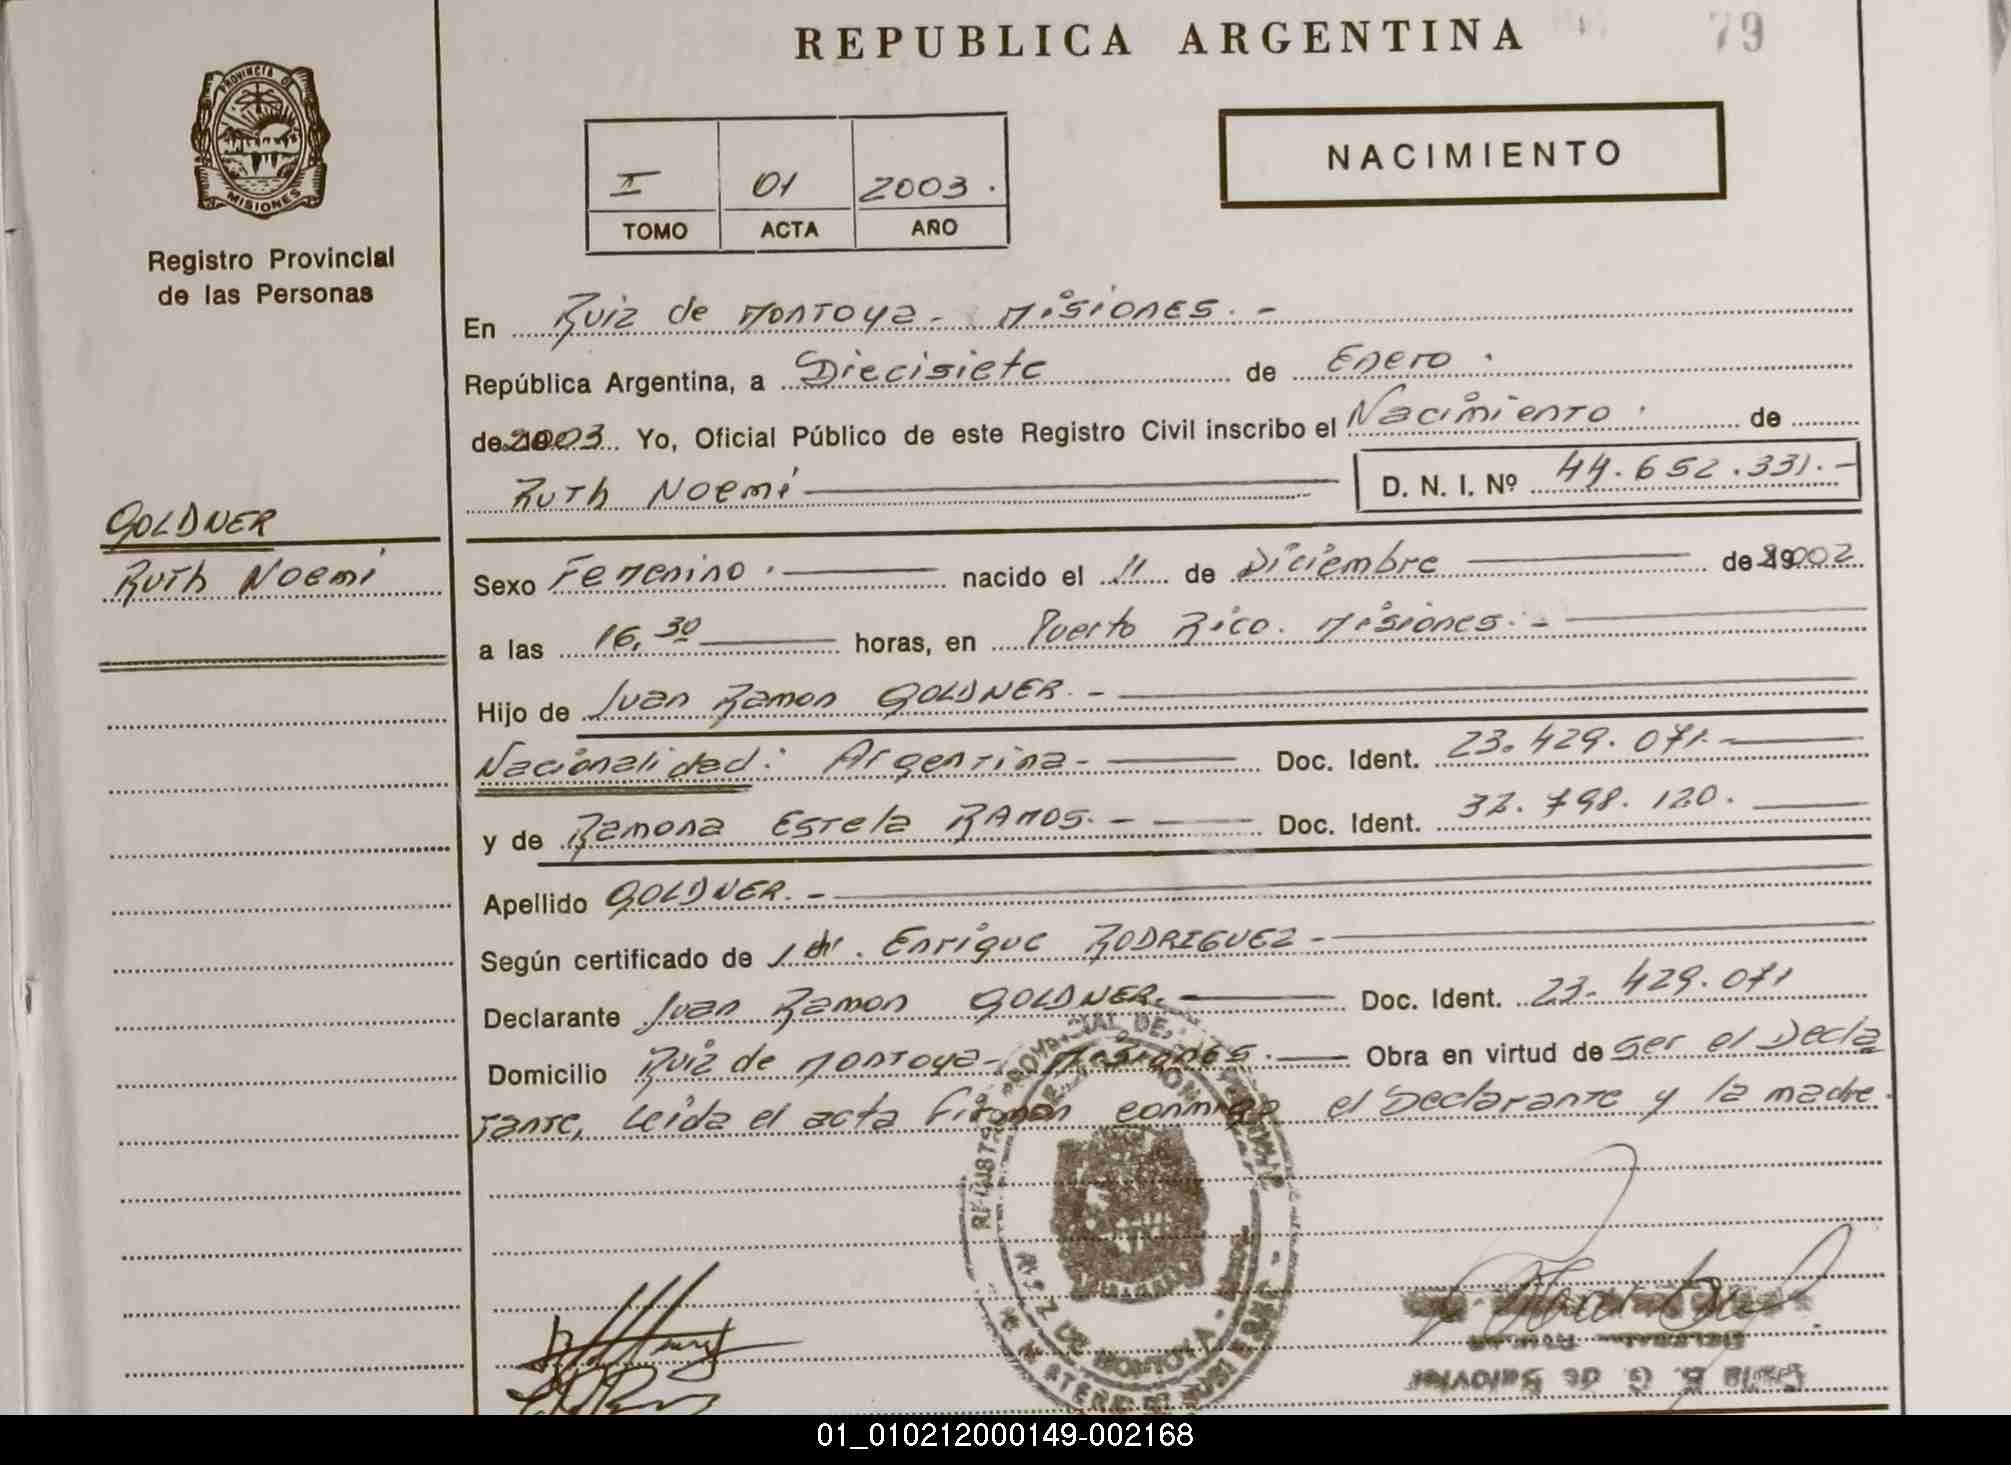 REPUBLICA ARGENTINA
79
PROVINCIA D
MISIONES
Registro Provincial
de las Personas
NACIMIENTO
I 01 2003.
TOMO ACTA AÑO
En Ruiz de Montoya - Misiones. -
República Argentina, a Diecisiete de Enero.
de 2003 Yo, Oficial Público de este Registro Civil inscribo el Nacimiento. de
Ruth Noemi D. N. I. Nº 44.652.331.-
GOLDNER
Ruth Noemi
Sexo Femenino. nacido el 11 de Diciembre de 2002
a las 16,30 horas, en Puerto Rico. Misiones. -
Hijo de Juan Ramon GOLDNER. -
Nacionalidad: Argentina - Doc. Ident. 23.429.071.-
y de Ramona Estela RAMOS. - Doc. Ident. 32.798.120.
Apellido GOLDNER. -
Según certificado de Dr. Enrique RODRIGUEZ -
Declarante Juan Ramon GOLDNER. Doc. Ident. 23.429.071
Domicilio Ruiz de Montoya - Misiones. Obra en virtud de ser el Decla
rante, Leida el acta firman conmigo el Declarante y la madre.
RUIZ DE MONTOYA
G. de Batovier
01_010212000149-002168